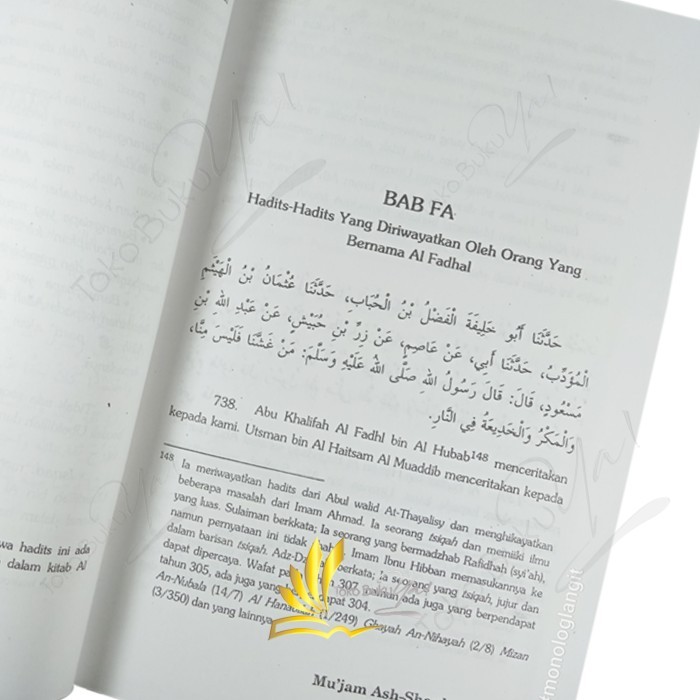 BAB FA
Hadits-Hadits Yang Diriwayatkan Oleh Orang Yang
Bernama Al Fadhal
حَدَّثَنَا أَبُو خَلِيفَةَ الْفَضْلُ بْنُ الْحُبَابِ، حَدَّثَنَا عُثْمَانُ بْنُ الْهَيْثَمِ
الْمُؤَدِّبُ، حَدَّثَنَا أَبِي، عَنْ عَاصِمٍ، عَنْ زِرِّ بْنِ حُبَيْشٍ، عَنْ عَبْدِ اللهِ بْنِ
مَسْعُودٍ، قَالَ: قَالَ رَسُولُ اللهِ صَلَّى اللهُ عَلَيْهِ وَسَلَّمَ: مَنْ غَشَّنَا فَلَيْسَ مِنَّا،
وَالْمَكْرُ وَالْخَدِيعَةُ فِي النَّارِ.
738. Abu Khalifah Al Fadhl bin Al Hubab148 menceritakan
kepada kami. Utsman bin Al Haitsam Al Muaddib menceritakan kepada
148 Ia meriwayatkan hadits dari Abul walid At-Thayalisy dan menghikayatkan
beberapa masalah dari Imam Ahmad. Ia seorang tsiqah dan memiiki ilmu
yang luas. Sulaiman berkkata; Ia seorang yang bermadzhab Rafidhah (syi'ah),
namun pernyataan ini tidak Imam Ibnu Hibban memasukannya ke
dalam barisan tsiqah. berkata; Ia seorang yang tsiqah, jujur dan
dapat dipercaya. Wafat 307 namun ada juga yang berpendapat
tahun 305, ada juga yang 304.
An-Nubala (14/7) Al (1/249) Ghayah An-Nihayah (2/8) Mizan
(3/350) dan yang lainnya
wa hadits ini ada
dalam kitab Al
Toko Buku Ya!
monologlangit